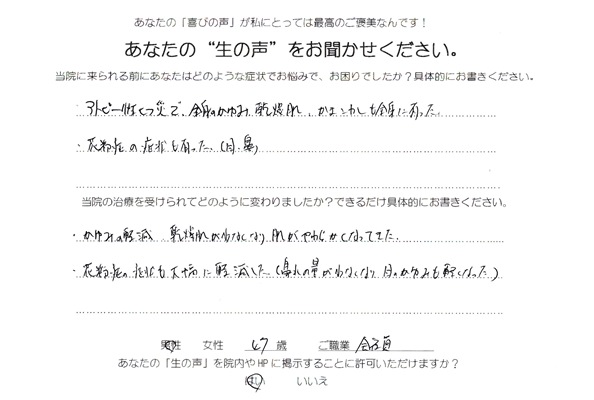 あなたの「喜びの声」が私にとっては最高のご褒美なんです！
あなたの“生の声”をお聞かせください。
当院に来られる前にあなたはどのような症状でお悩みで、お困りでしたか？具体的にお書きください。
アトピー性ヒフ炎で、全身のかゆみ、乾燥肌、かきこわしも全身に有った。
・花粉症の症状も有った。（目・鼻）
当院の治療を受けられてどのように変わりましたか？できるだけ具体的にお書きください。
・かゆみの軽減 乾燥肌が少なくなり 肌がやわらかくなってきた。
・花粉症の症状も大幅に軽減した（鼻水の量が少なくなり 目のかゆみも軽くなった）
男性 女性 47歳 ご職業 会社員
あなたの「生の声」を院内やHPに掲示することに許可いただけますか？
はい いいえ